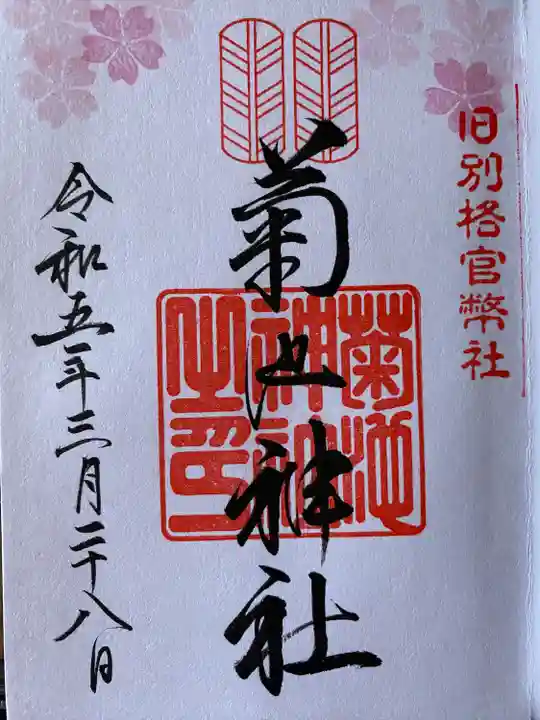 旧別格官幣社
菊池神社
菊池
神社
之印
令和五年三月二十八日